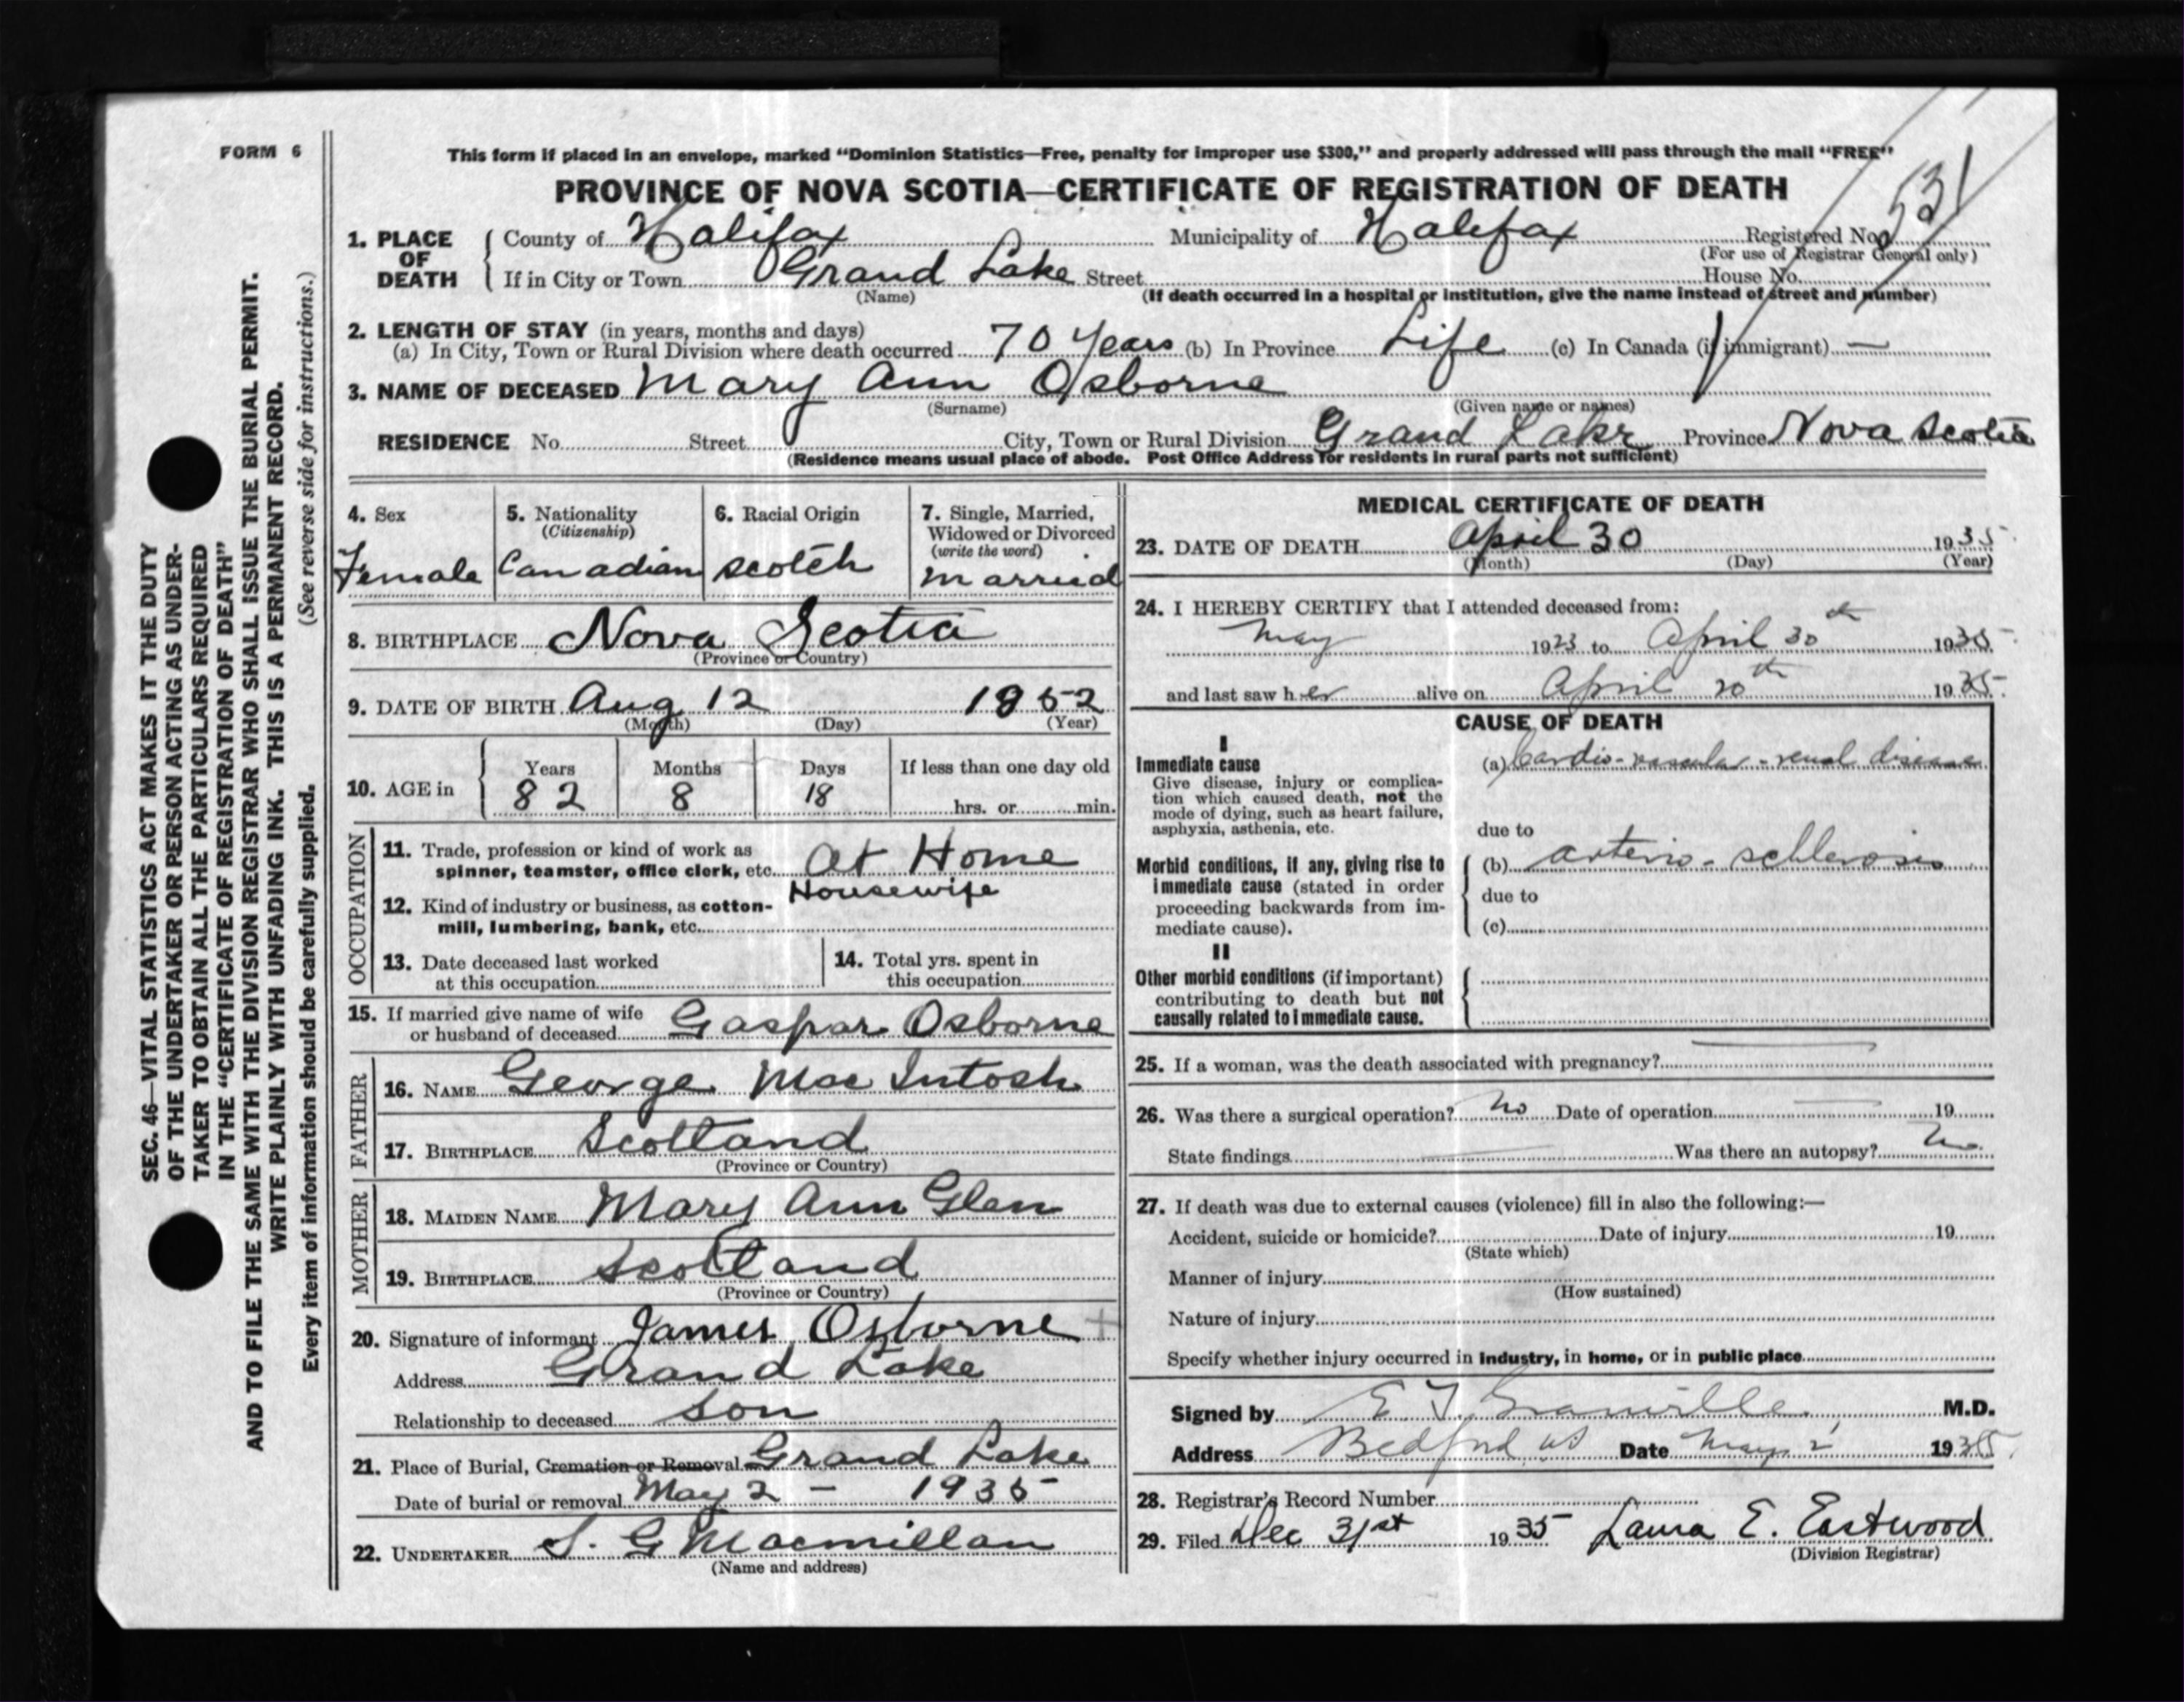 FORM 6
This form if placed in an envelope, marked "Dominion Statistics—Free, penalty for improper use $300," and properly addressed will pass through the mail "FREE"
PROVINCE OF NOVA SCOTIA—CERTIFICATE OF REGISTRATION OF DEATH
1. PLACE OF DEATH { County of Halifax Municipality of Halifax Registered No. 531
(For use of Registrar General only)
If in City or Town Grand Lake Street House No.
(Name) (If death occurred in a hospital or institution, give the name instead of street and number)
2. LENGTH OF STAY (in years, months and days)
(a) In City, Town or Rural Division where death occurred 70 years (b) In Province Life (c) In Canada (if immigrant) —
3. NAME OF DECEASED Mary Ann Osborne
(Surname) (Given name or names)
RESIDENCE No. Street City, Town or Rural Division Grand Lake Province Nova Scotia
(Residence means usual place of abode. Post Office Address for residents in rural parts not sufficient)
4. Sex
Female
5. Nationality
(Citizenship)
Canadian
6. Racial Origin
scotch
7. Single, Married,
Widowed or Divorced
(write the word)
married
8. BIRTHPLACE Nova Scotia
(Province or Country)
9. DATE OF BIRTH Aug 12 1852
(Month) (Day) (Year)
10. AGE in { Years Months Days If less than one day old
82 8 18 hrs. or min.
OCCUPATION
11. Trade, profession or kind of work as
spinner, teamster, office clerk, etc. at Home
Housewife
12. Kind of industry or business, as cotton-
mill, lumbering, bank, etc.
13. Date deceased last worked
at this occupation
14. Total yrs. spent in
this occupation
15. If married give name of wife
or husband of deceased Gaspar Osborne
FATHER
16. NAME George Mac Intosh
17. BIRTHPLACE Scotland
(Province or Country)
MOTHER
18. MAIDEN NAME Mary Ann Glen
19. BIRTHPLACE Scotland
(Province or Country)
20. Signature of informant James Osborne +
Address Grand Lake
Relationship to deceased son
21. Place of Burial, Cremation or Removal Grand Lake
Date of burial or removal May 2 – 1935
22. UNDERTAKER S. G Macmillan
(Name and address)
MEDICAL CERTIFICATE OF DEATH
23. DATE OF DEATH April 30 1935
(Month) (Day) (Year)
24. I HEREBY CERTIFY that I attended deceased from:
May 1923 to April 30th 1935
and last saw her alive on April 20th 1935
CAUSE OF DEATH
I
Immediate cause
Give disease, injury or complica-
tion which caused death, not the
mode of dying, such as heart failure,
asphyxia, asthenia, etc.
(a) Cardio-vascular-renal disease
due to
Morbid conditions, if any, giving rise to
immediate cause (stated in order
proceeding backwards from im-
mediate cause).
(b) arterio-schlerosis
due to
(c)
II
Other morbid conditions (if important)
contributing to death but not
causally related to immediate cause.
25. If a woman, was the death associated with pregnancy? —
26. Was there a surgical operation? no Date of operation — 19
State findings — Was there an autopsy? no
27. If death was due to external causes (violence) fill in also the following:—
Accident, suicide or homicide? Date of injury 19
(State which)
Manner of injury
(How sustained)
Nature of injury
Specify whether injury occurred in industry, in home, or in public place
Signed by E T Granville M.D.
Address Bedford NS Date May 2 1935
28. Registrar's Record Number
29. Filed Dec 31st 1935 Laura E. Eastwood
(Division Registrar)
SEC. 46—VITAL STATISTICS ACT MAKES IT THE DUTY
OF THE UNDERTAKER OR PERSON ACTING AS UNDER-
TAKER TO OBTAIN ALL THE PARTICULARS REQUIRED
IN THE "CERTIFICATE OF REGISTRATION OF DEATH"
AND TO FILE THE SAME WITH THE DIVISION REGISTRAR WHO SHALL ISSUE THE BURIAL PERMIT.
WRITE PLAINLY WITH UNFADING INK. THIS IS A PERMANENT RECORD.
Every item of information should be carefully supplied. (See reverse side for instructions.)